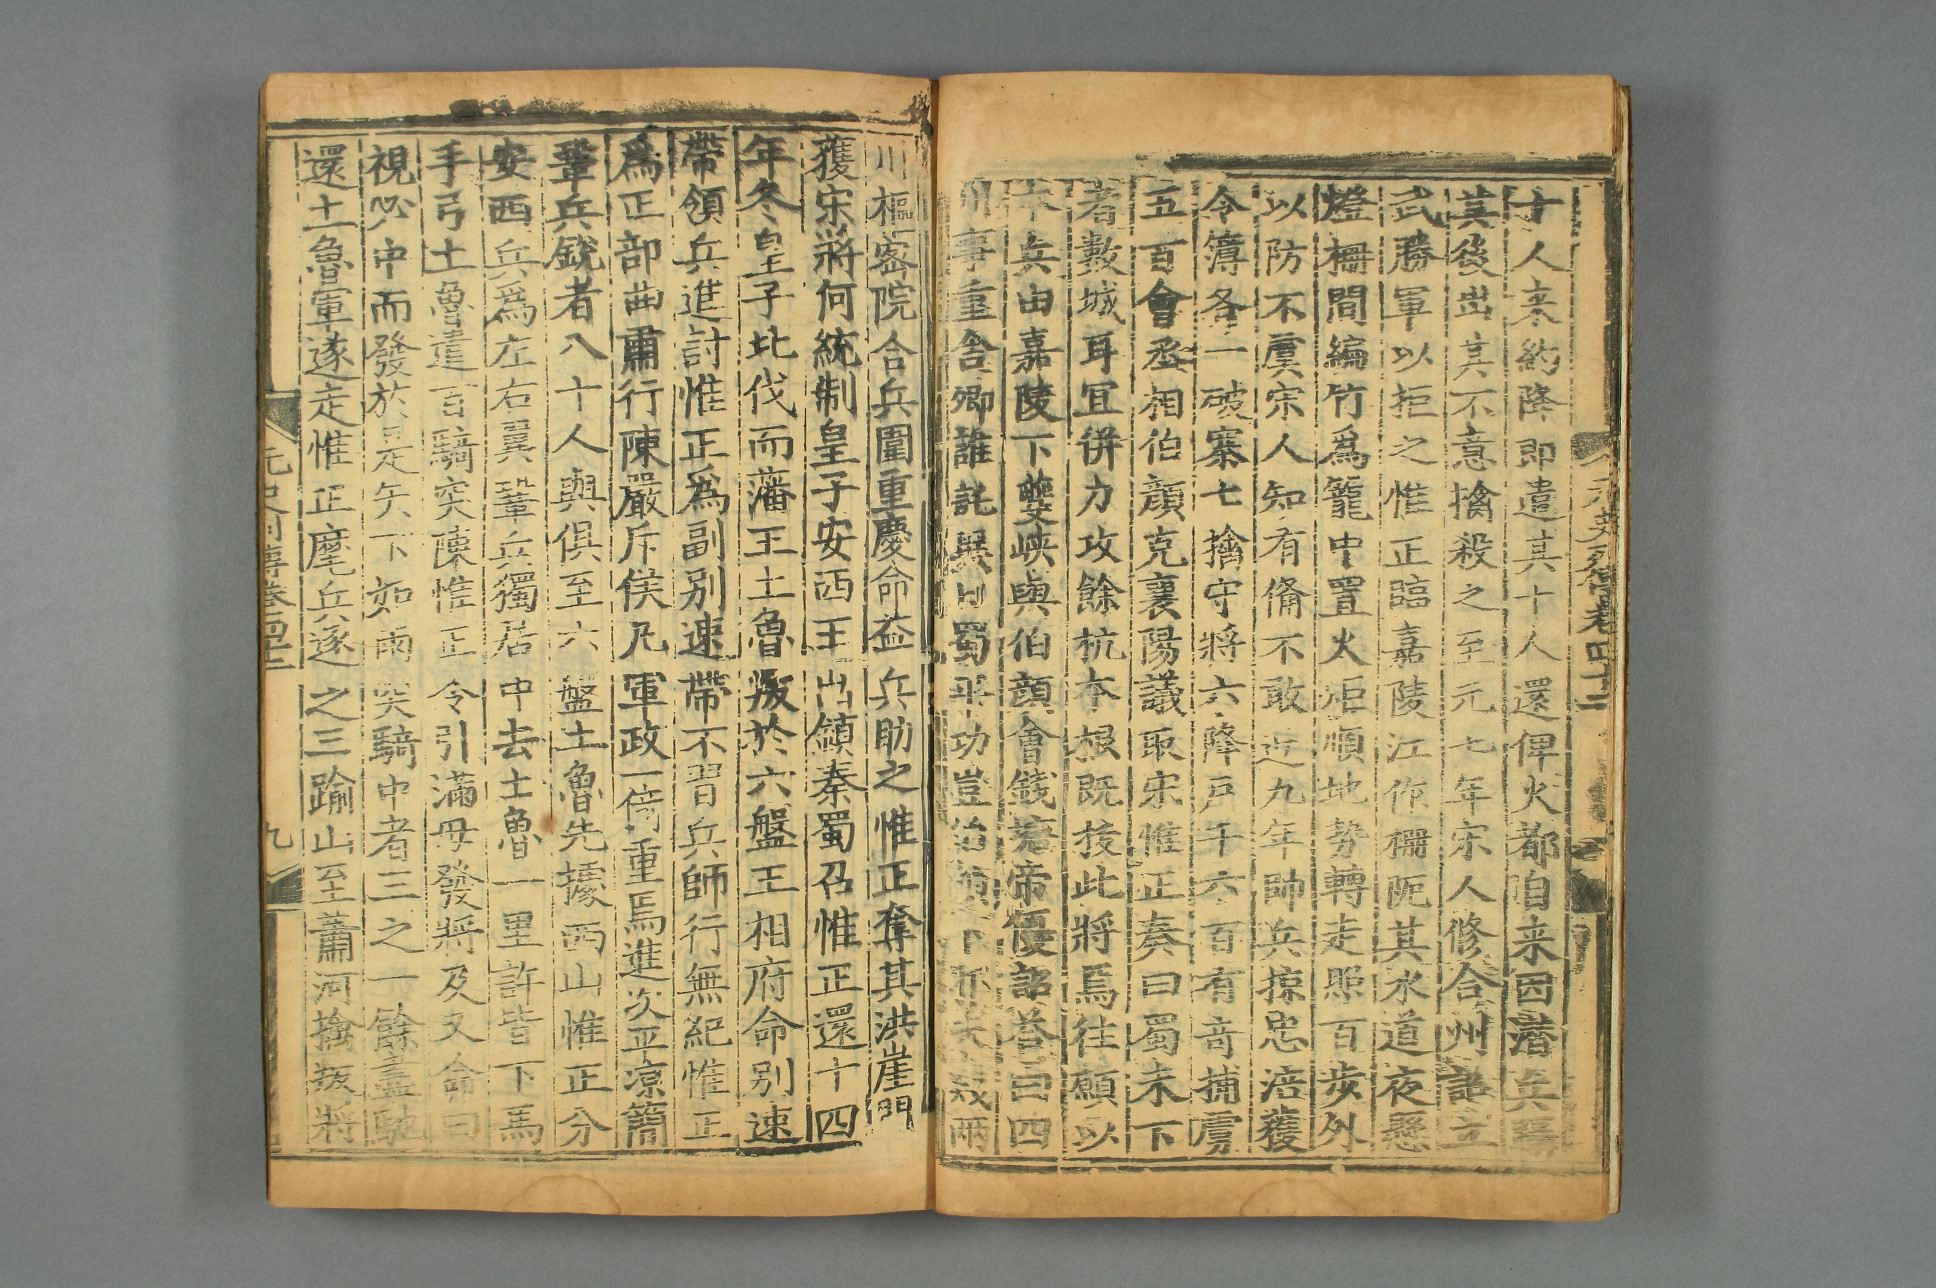 十人來約降即遣其十人還俾火都自来因潛兵躡
其後出其不意擒殺之至元七年宋人修合州詔立
武勝軍以拒之惟正臨嘉陵江作柵阨其水道夜懸
燈柵間編竹爲籠中置火炬順地勢轉走照百步外
以防不虞宋人知有俻不敢近九年帥兵掠忠涪獲
令簿各一破寨七擒守將六降戸千六百有奇捕虜
五百會丞相伯顔克襄陽議取宋惟正奏曰蜀未下
者數城耳宜併力攻餘杭本根既㧞此將焉往願以
本兵由嘉陵下夔峽與伯顔會錢塘帝優詔荅曰四
川事重舎卿誰託異日蜀平功豈
川樞密院合兵圍重慶命益兵助之惟正奪其洪崖門
獲宋將何統制皇子安西王出鎮秦蜀召惟正還十四
年冬皇子北伐而藩王土魯叛於六盤王相府命别速
帶領兵進討惟正爲副别速帶不習兵師行無紀惟正
爲正部曲肅行陳嚴斥候凡軍政一倚重焉進次平凉簡
鞏兵銳者八十人與俱至六盤土魯先據西山惟正分
安西兵爲左右翼鞏兵獨居中去土魯一里許皆下馬
手弓土魯遣百騎突陳惟正令引滿毋發將及又命曰
視必中而發於是矢下如雨突騎中者三之一餘盡馳
還土魯軍遂走惟正麾兵逐之三踰山至蕭河擒叛將
元史列傳卷四十二
九